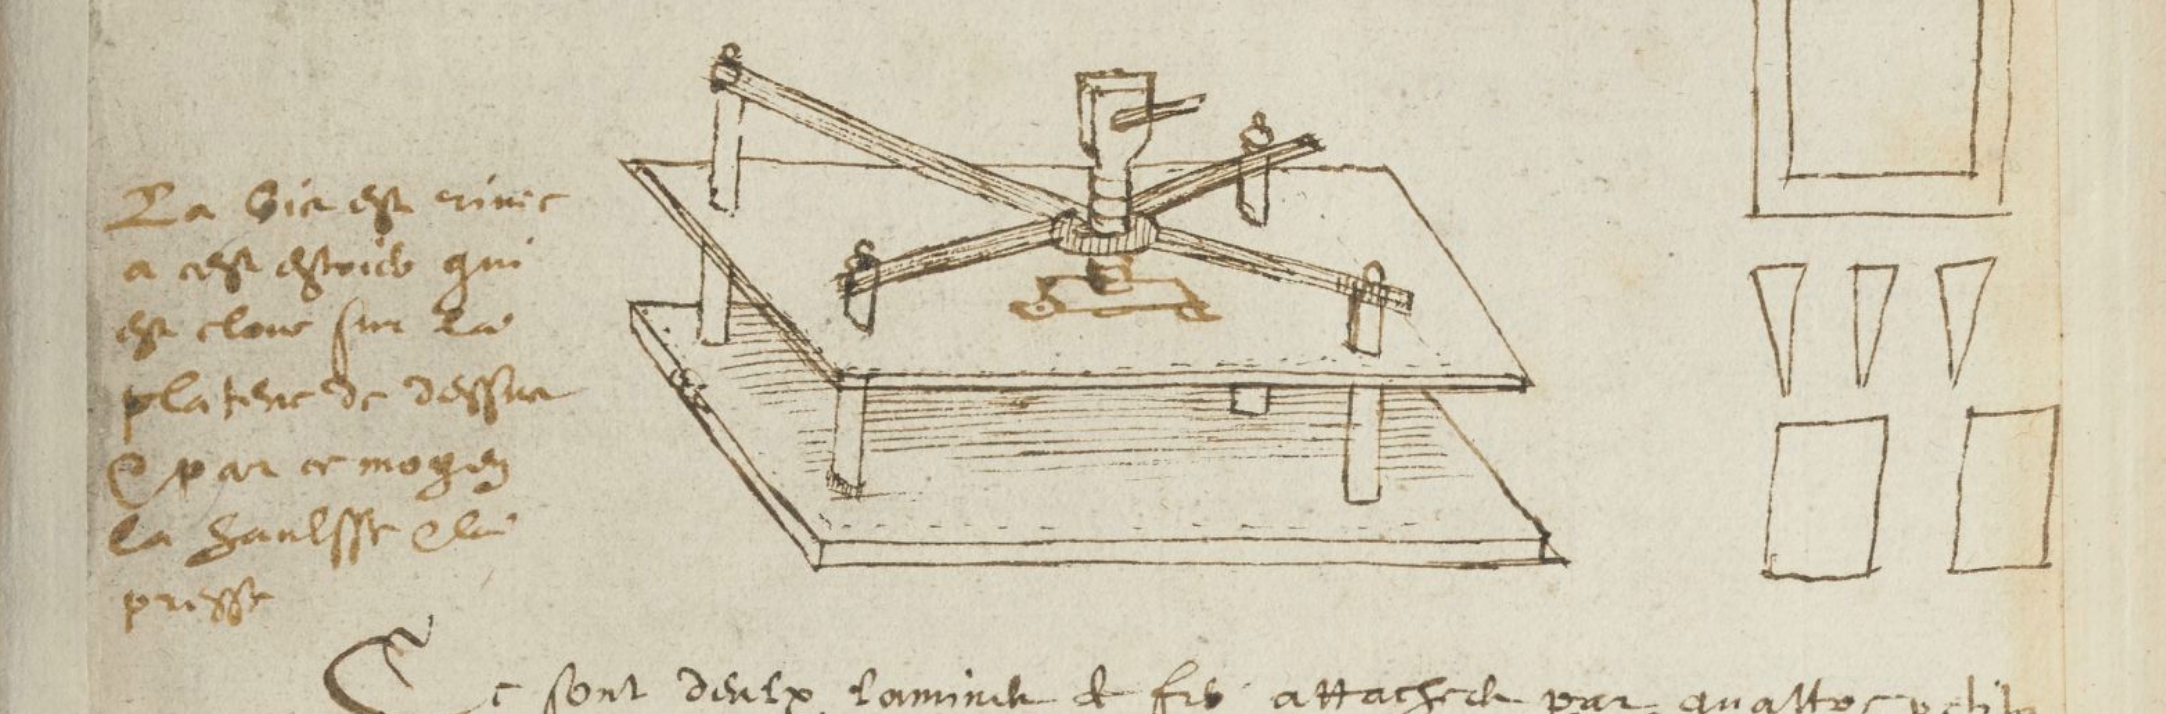 La vis est rivee
a cest estrieu qui
est cloue sur la
platene de dessus
& par ce moyen
la haulsse & la
presse
Ce sont deulx lamines de fer attachees par quattre petits